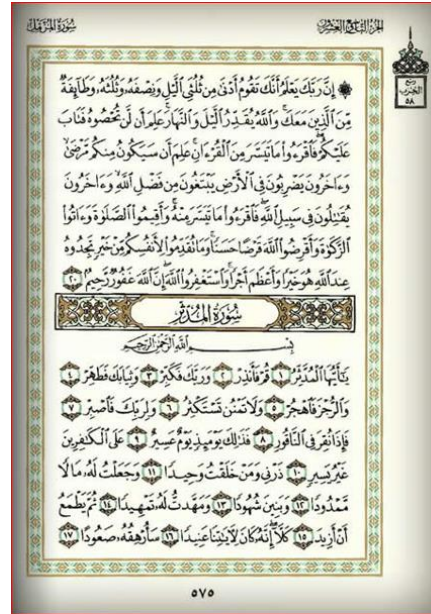 سُورَةُ المُزَّمِّل
الجُزْءُ التَّاسِعُ وَالعِشْرُونَ
رُبْعُ
الحِزْبِ
٥٨
۞ إِنَّ رَبَّكَ يَعْلَمُ أَنَّكَ تَقُومُ أَدْنَىٰ مِن ثُلُثَيِ ٱلَّيْلِ وَنِصْفَهُۥ وَثُلُثَهُۥ وَطَآئِفَةٌ
مِّنَ ٱلَّذِينَ مَعَكَ ۚ وَٱللَّهُ يُقَدِّرُ ٱلَّيْلَ وَٱلنَّهَارَ ۚ عَلِمَ أَن لَّن تُحْصُوهُ فَتَابَ
عَلَيْكُمْ ۖ فَٱقْرَءُوا۟ مَا تَيَسَّرَ مِنَ ٱلْقُرْءَانِ ۚ عَلِمَ أَن سَيَكُونُ مِنكُم مَّرْضَىٰ ۙ
وَءَاخَرُونَ يَضْرِبُونَ فِى ٱلْأَرْضِ يَبْتَغُونَ مِن فَضْلِ ٱللَّهِ ۙ وَءَاخَرُونَ
يُقَـٰتِلُونَ فِى سَبِيلِ ٱللَّهِ ۖ فَٱقْرَءُوا۟ مَا تَيَسَّرَ مِنْهُ ۚ وَأَقِيمُوا۟ ٱلصَّلَوٰةَ وَءَاتُوا۟
ٱلزَّكَوٰةَ وَأَقْرِضُوا۟ ٱللَّهَ قَرْضًا حَسَنًا ۚ وَمَا تُقَدِّمُوا۟ لِأَنفُسِكُم مِّنْ خَيْرٍ تَجِدُوهُ
عِندَ ٱللَّهِ هُوَ خَيْرًا وَأَعْظَمَ أَجْرًا ۚ وَٱسْتَغْفِرُوا۟ ٱللَّهَ ۖ إِنَّ ٱللَّهَ غَفُورٌ رَّحِيمٌۢ ٢٠
سُورَةُ المُدَّثِّرِ
بِسْمِ ٱللَّهِ ٱلرَّحْمَـٰنِ ٱلرَّحِيمِ
يَـٰٓأَيُّهَا ٱلْمُدَّثِّرُ ١ قُمْ فَأَنذِرْ ٢ وَرَبَّكَ فَكَبِّرْ ٣ وَثِيَابَكَ فَطَهِّرْ ٤
وَٱلرُّجْزَ فَٱهْجُرْ ٥ وَلَا تَمْنُن تَسْتَكْثِرُ ٦ وَلِرَبِّكَ فَٱصْبِرْ ٧
فَإِذَا نُقِرَ فِى ٱلنَّاقُورِ ٨ فَذَٰلِكَ يَوْمَئِذٍ يَوْمٌ عَسِيرٌ ٩ عَلَى ٱلْكَـٰفِرِينَ
غَيْرُ يَسِيرٍ ١٠ ذَرْنِى وَمَنْ خَلَقْتُ وَحِيدًا ١١ وَجَعَلْتُ لَهُۥ مَالًا
مَّمْدُودًا ١٢ وَبَنِينَ شُهُودًا ١٣ وَمَهَّدتُّ لَهُۥ تَمْهِيدًا ١٤ ثُمَّ يَطْمَعُ
أَنْ أَزِيدَ ١٥ كَلَّآ ۖ إِنَّهُۥ كَانَ لِـَٔايَـٰتِنَا عَنِيدًا ١٦ سَأُرْهِقُهُۥ صَعُودًا ١٧
٥٧٥